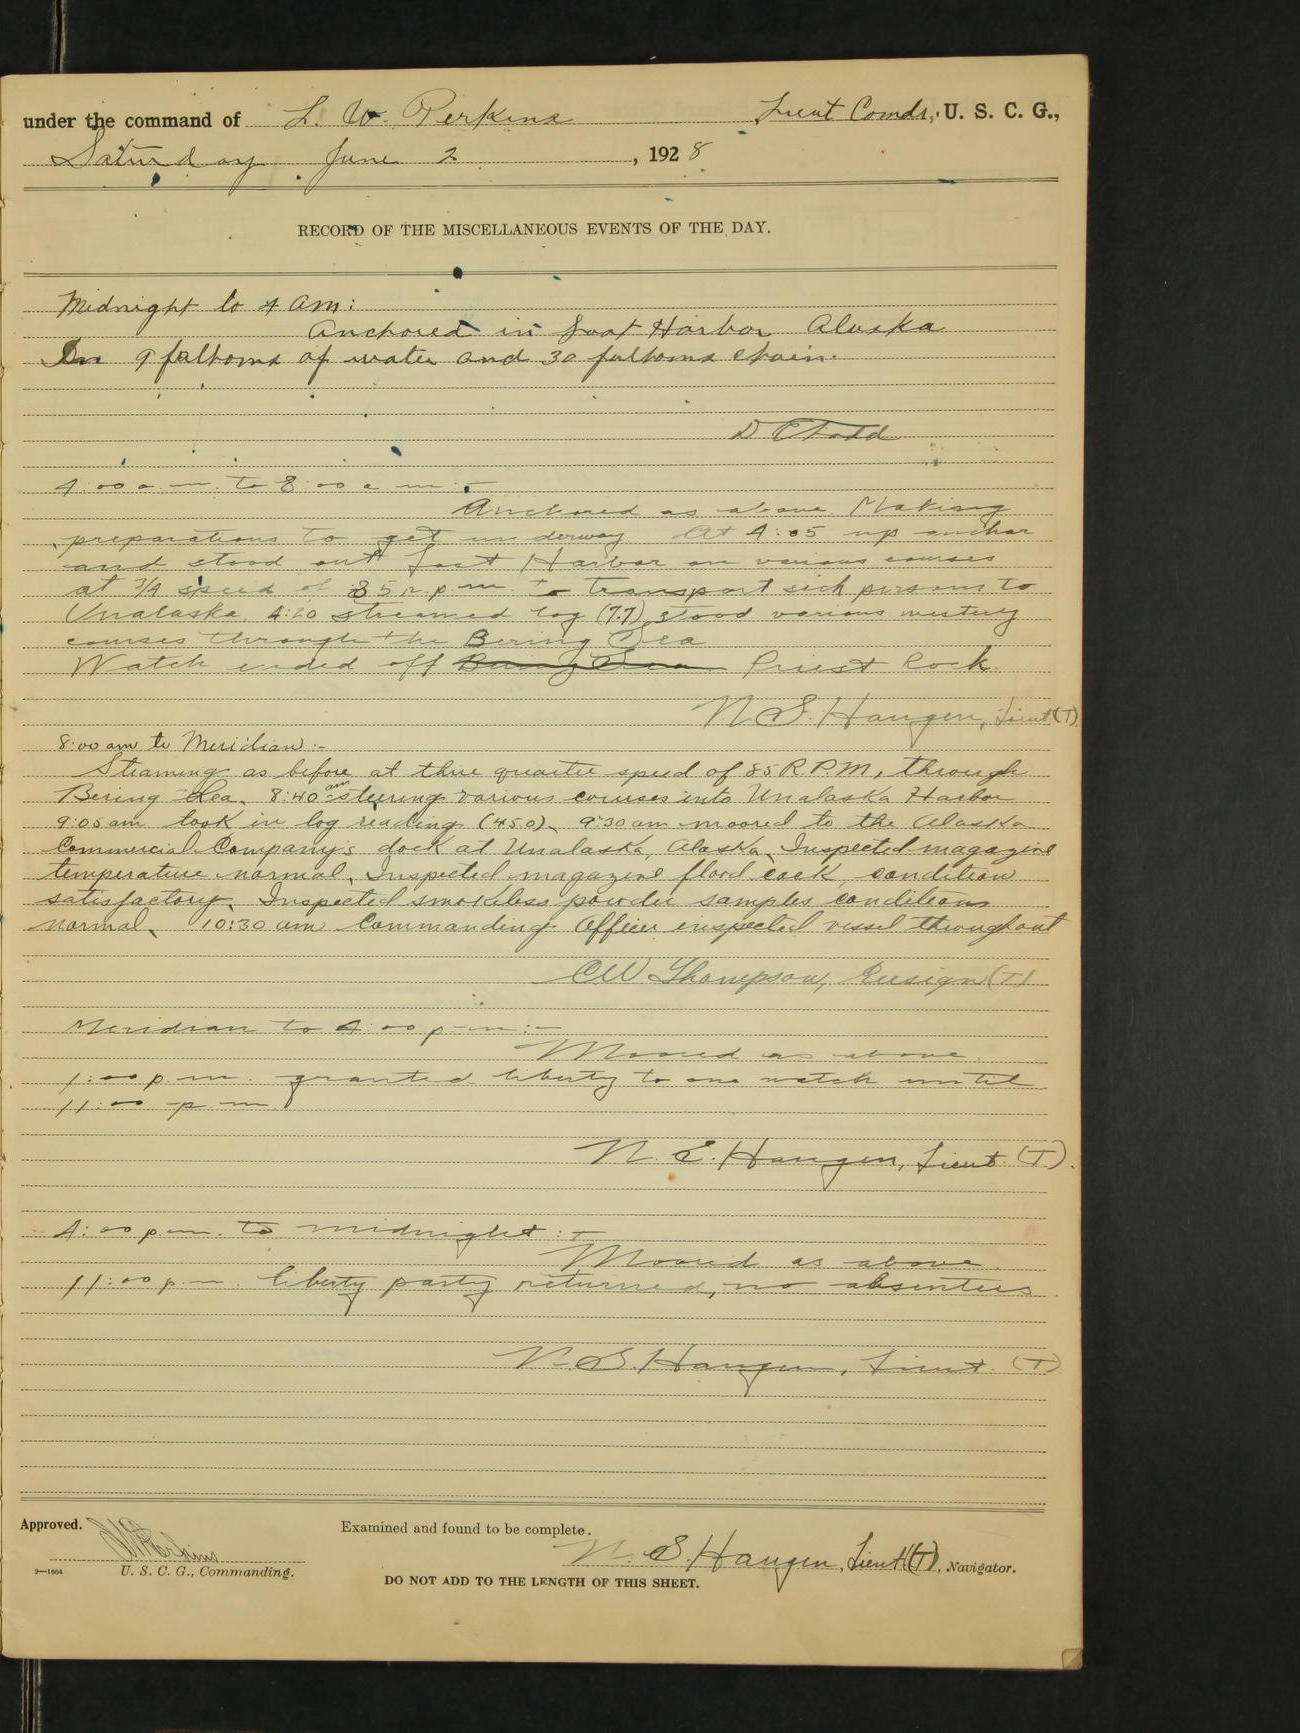 under the command of L. W. Perkins Lieut Comdr, U. S. C. G.,
Saturday June 2, 1928
RECORD OF THE MISCELLANEOUS EVENTS OF THE DAY.
Midnight to 4 am:
Anchored in Lost Harbor Alaska
In 9 fathoms of water and 30 fathoms chain.
4:00 a.m. to 8:00 a.m. :-
Anchored as above. Making
preparations to get underway At 4:05 up anchor
and stood out Lost Harbor on various courses
at 3/4 speed of 85 r.p.m to transport sick persons to
Unalaska. 4:20 streamed log (7.7) stood various westerly
courses through the Bering Sea
Watch ended off Bering Sea Priest Rock.
N. S. Haugen, Lieut (T)
8:00 am to Meridian:-
Steaming as before at three quarter speed of 85 R.P.M, through
Bering Sea. 8:40 am steering various courses into Unalaska Harbor
9:05 am took in log reading (45.0). 9:30 am moored to the Alaska
Commercial Company's dock at Unalaska, Alaska. Inspected magazine
temperature normal. Inspected magazine flood cock, condition
satisfactory. Inspected smokeless powder samples conditions
normal. 10:30 am Commanding Officer inspected vessel throughout
C W Thompson, Ensign (T)
Meridian to 4:00 p.m:-
Moored as above.
1:00 p.m. granted liberty to one watch until
11:00 p.m.
N. S. Haugen, Lieut. (T).
4:00 p.m. to midnight:-
Moored as above.
11:00 p.m. liberty party returned, no absentees.
N. S. Haugen, Lieut. (T)
Approved.
L W Perkins
U. S. C. G., Commanding.
2—1664
Examined and found to be complete.
N. S. Haugen, Lieut (T), Navigator.
DO NOT ADD TO THE LENGTH OF THIS SHEET.